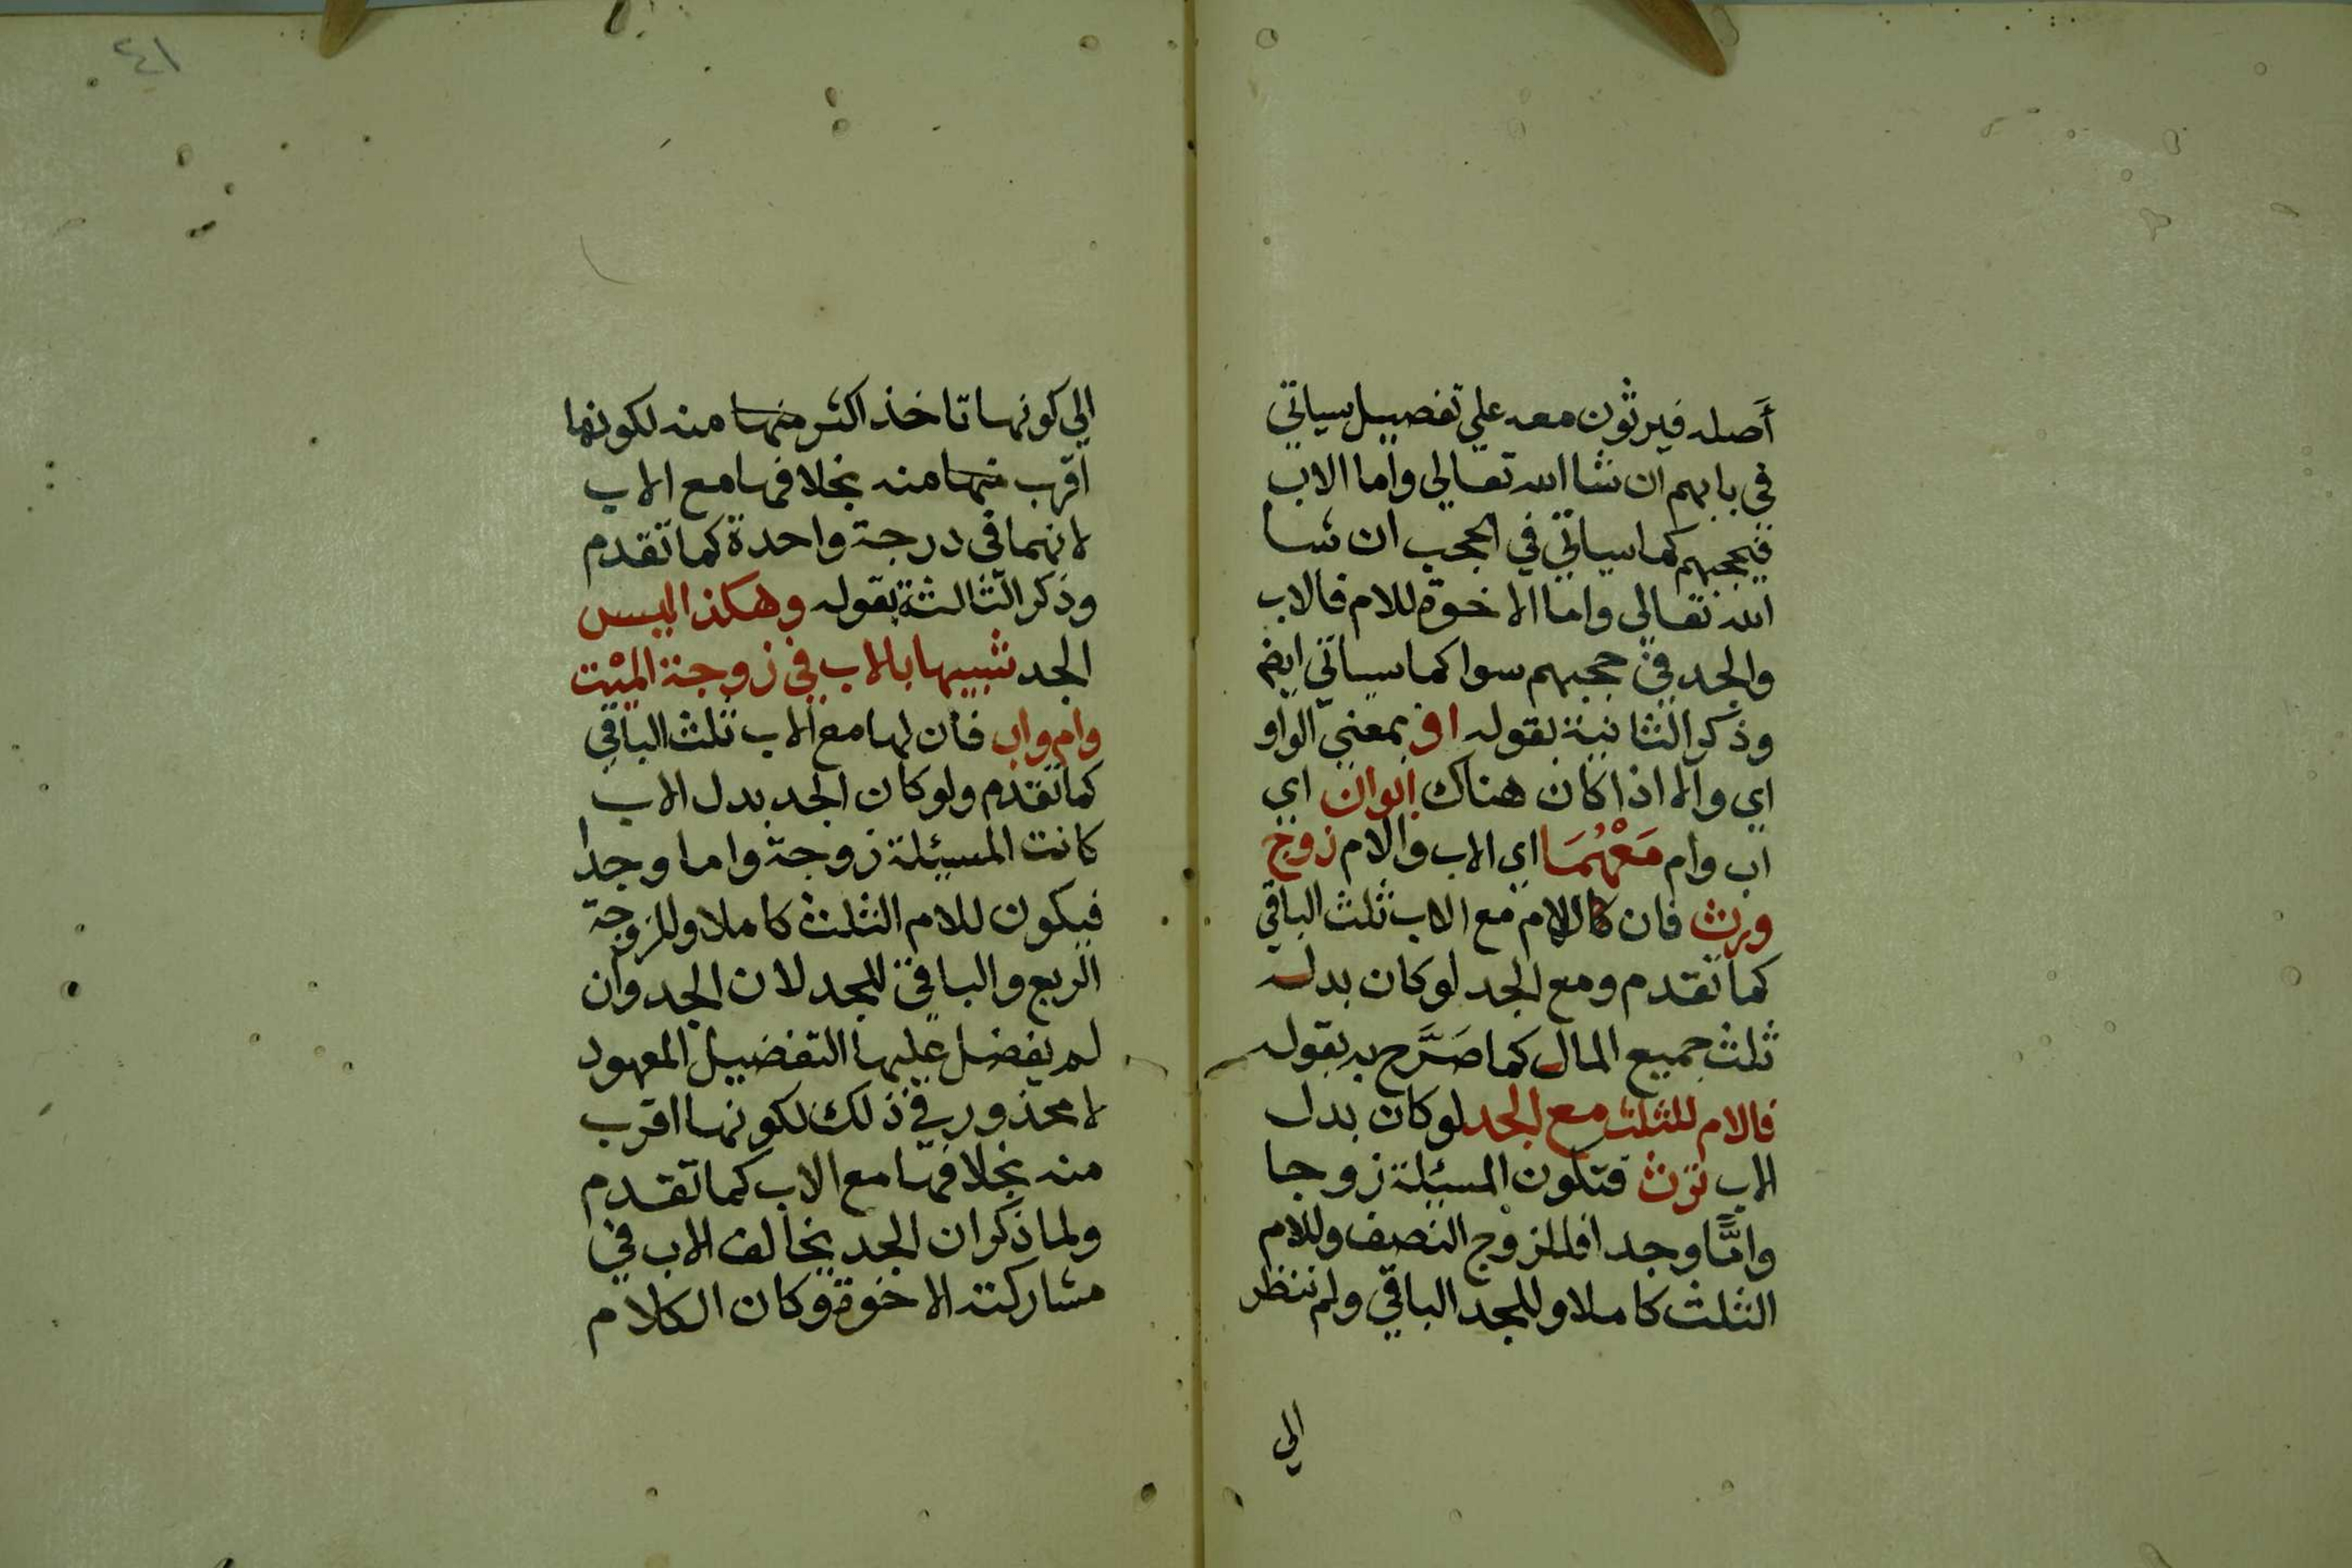 أصله فيرثون معه علي تفصيل سياتي
في بابهم ان شا الله تعالي واما الاب
فيحجبهم كما سياتي في الحجب ان شا
الله تعالي واما الاخوة للام فالاب
والجد في حجبهم سوا كما سياتي ايضا
وذكر الثانية بقوله او بمعني الواو
اي والا اذا كان هناك ابوان اي
اب وام معهما اي الاب والام زوج
ورث فان للام مع الاب ثلث الباقي
كما تقدم ومع الجد لو كان بدله
ثلث جميع المال كما صرح به بقوله
فالام للثلث مع الجد لو كان بدل
الاب ترث فتكون المسئلة زوجا
واما وجدا فللزوج النصف وللام
الثلث كاملا وللجد الباقي ولم ننظر
الي
٤١
الي كونها تاخذ اكثر منها منه لكونها
اقرب منها منه بخلافها مع الاب
لانهما في درجة واحدة كما تقدم
وذكر الثالثة بقوله وهكذا ليس
الجد شبيها بالاب في زوجة الميت
وام واب فان لها مع الاب ثلث الباقي
كما تقدم ولو كان الجد بدل الاب
كانت المسئلة زوجة واما وجدا
فيكون للام الثلث كاملا وللزوجة
الربع والباقي للجد لان الجد وان
لم يفضل عليها التفضيل المعهود
لا محذور في ذلك لكونها اقرب
منه بخلافها مع الاب كما تقدم
ولما ذكر ان الجد يخالف الاب في
مشاركته الاخوة وكان الكلام